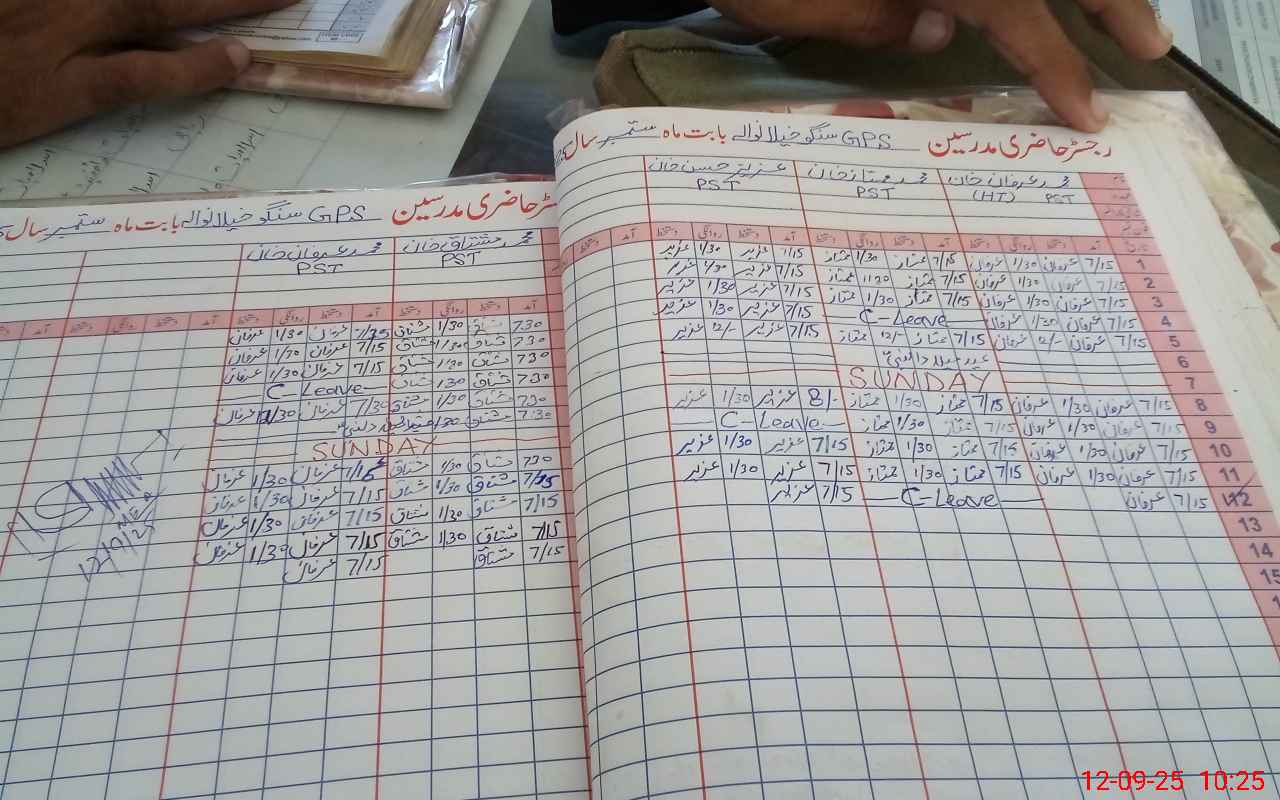 رجسٹر حاضری مدرسین GPS سنگو خیلانوالہ بابت ماہ ستمبر سال
محمد عرفان خان محمد ممتاز خان عزیز حسن خان
(HT) PST PST PST
آمد دستخط روانگی دستخط آمد دستخط روانگی دستخط آمد دستخط روانگی دستخط آمد دستخط
1 7/15 عرفان 1/30 عرفان 7/15 ممتاز 1/30 ممتاز 7/15 عزیر 1/30 عزیر
2 7/15 عرفان 1/30 عرفان 7/15 ممتاز 11:20 ممتاز 7/15 عزیر 1/30 عزیر
3 7/15 عرفان 1/30 عرفان 7/15 ممتاز 1/30 ممتاز 7/15 عزیر 1/30 عزیر
4 7/15 عرفان 1/30 عرفان C-Leave 7/15 عزیر 1/30 عزیر
5 7/15 عرفان 12/- عرفان 7/15 ممتاز 12/- ممتاز 7/15 عزیر 12/- عزیر
6 عید میلاد النبی
7 SUNDAY
8 7/15 عرفان 1/30 عرفان 7/15 ممتاز 1/30 ممتاز 8/- عزیر 1/30 عزیر
9 7/15 عرفان 1/30 عرفان 7/15 ممتاز 1/30 ممتاز C-Leave
10 7/15 عرفان 1/30 عرفان 7/15 ممتاز 1/30 ممتاز 7/15 عزیر 1/30 عزیر
11 7/15 عرفان 1/30 عرفان 7/15 ممتاز 1/30 ممتاز 7/15 عزیر 1/30 عزیر
12 7/15 عرفان C-Leave 7/15 عزیر
13
14
15
رجسٹر حاضری مدرسین GPS سنگو خیلانوالہ بابت ماہ ستمبر سال
محمد مشتاق خان محمد عرفان خان
PST PST
آمد دستخط روانگی دستخط آمد دستخط روانگی دستخط آمد دستخط روانگی دستخط آمد
7:30 مشتاق 1/30 مشتاق 7/15 عرفان 1/30 عرفان
7:30 مشتاق 1/30 مشتاق 7/15 عرفان 1/30 عرفان
7:30 مشتاق 1/30 مشتاق 7/15 عرفان 1/30 عرفان
7:30 مشتاق 1:30 مشتاق C-Leave
7:30 مشتاق 1/30 مشتاق 7/30 عرفان 1/30 عرفان
7:30 مشتاق 1:30
SUNDAY
7:30 مشتاق 1/30 مشتاق 7/15 عرفان 1/30 عرفان
7/15 مشتاق 1/30 مشتاق 7/15 عرفان 1/30 عرفان
7/15 مشتاق 1/30 مشتاق 7/15 عرفان 1/30 عرفان
7/15 مشتاق 1/30 مشتاق 7/15 عرفان 1/30 عرفان
7/15 مشتاق 7/15 عرفان
12/9/25
12-09-25 10:25